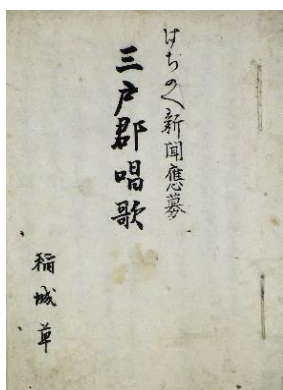 はちのへ新聞應募
三戸郡唱歌
稲城草